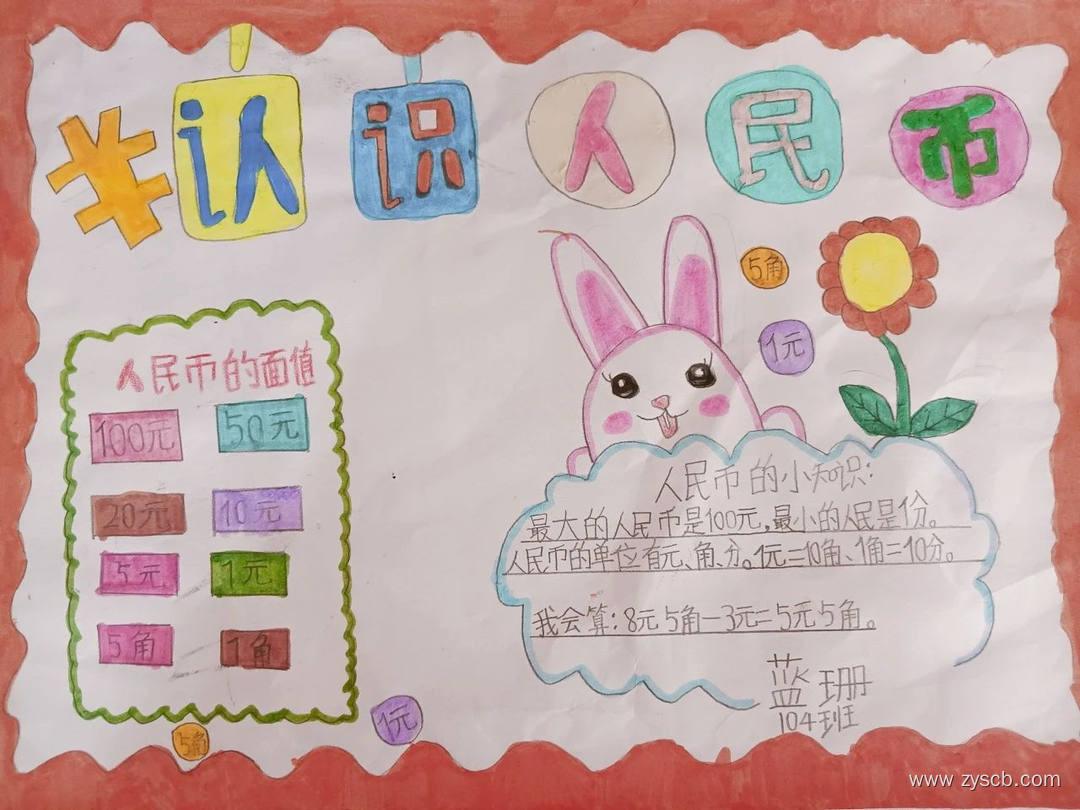 ¥
认识人民币
5角
1元
人民币的面值
100元 50元
20元 10元
5元 1元
5角 1角
人民币的小知识:
最大的人民币是100元,最小的人民是1分。
人民币的单位有元、角、分。1元=10角、1角=10分。
我会算:8元5角-3元=5元5角。
蓝珊
104班
5角
1元
www.zyscb.com